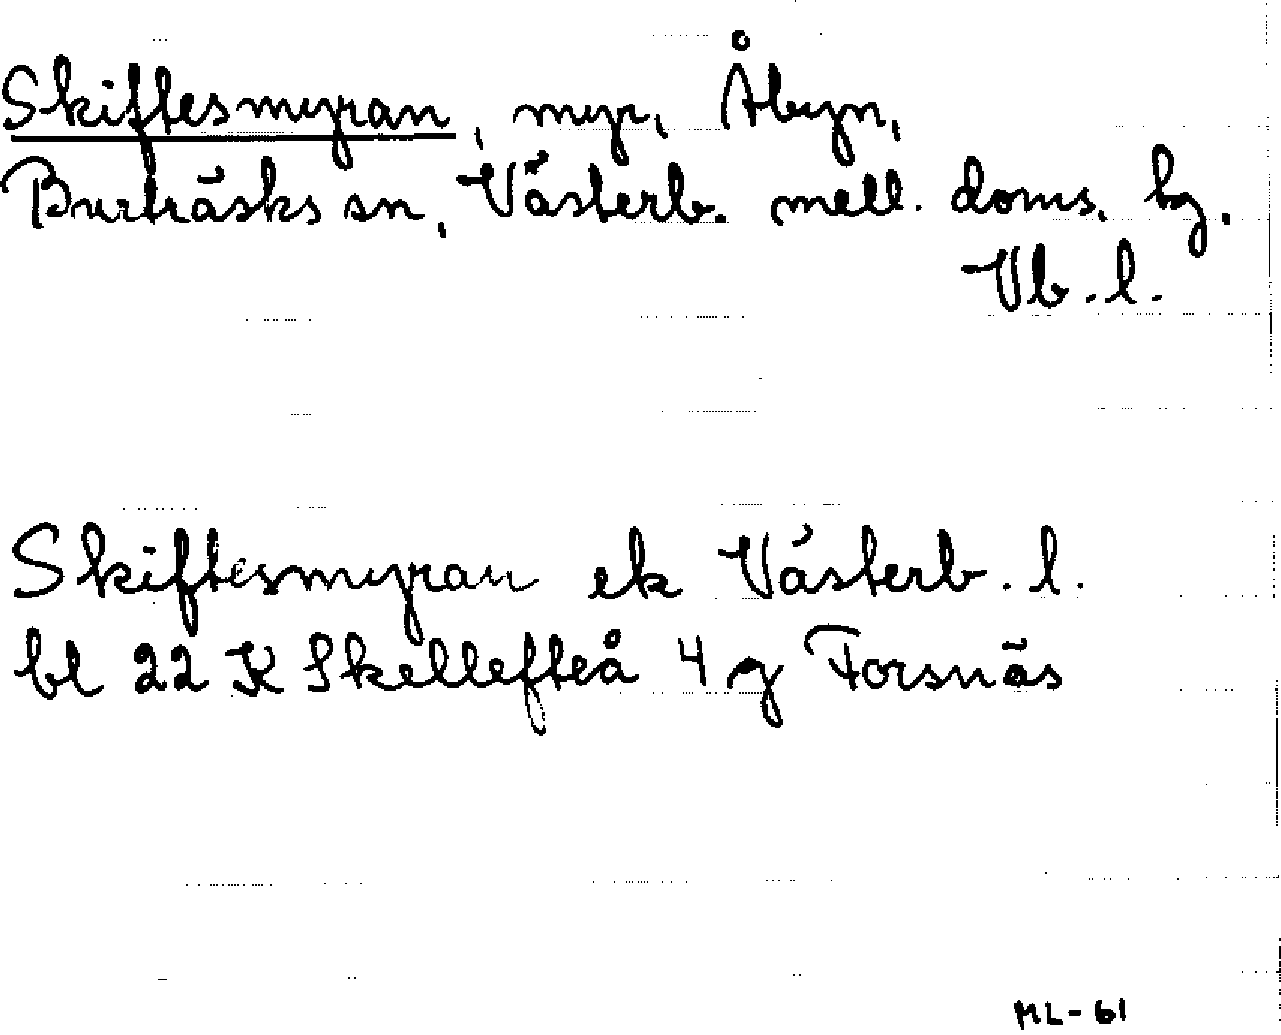 Skiftesmyran, myr, Åbyn,
Burträsks sn, Västerb. mell. doms. hg,
Vb. l.
Skiftesmyran ek Västerb. l.
bl 22 K Skellefteå 4 g Forsnäs
ML-61